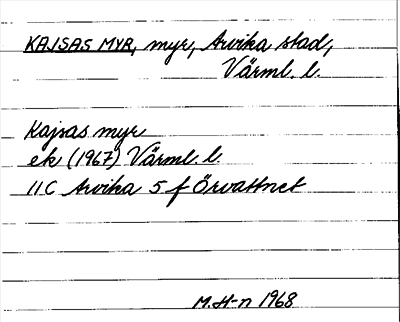 KAJSAS MYR, myr, Arvika stad,
Värml. l.
Kajsas myr
ek (1967) Värml. l.
11C Arvika 5 f Örvattnet
M.H-n 1968